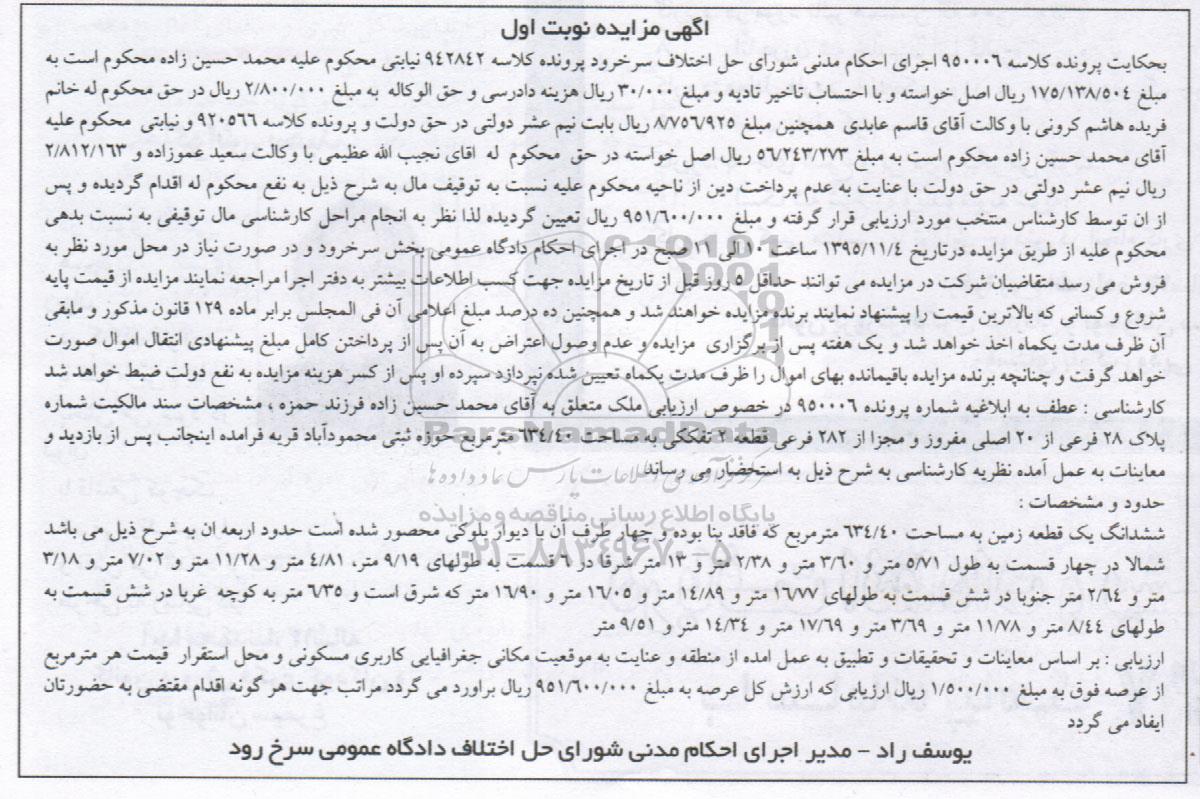 اگهی مزایده نوبت اول
بحکایت پرونده کلاسه ۹۵۰۰۰۶ اجرای احکام مدنی شورای حل اختلاف سرخرود پرونده کلاسه ۹۴۲۸۴۲ نیابتی محکوم علیه محمد حسین زاده محکوم است به
مبلغ ۱۷۵/۱۳۸/۵۰۴ ریال اصل خواسته و با احتساب تاخیر تادیه و مبلغ ۳۰/۰۰۰ ریال هزینه دادرسی و حق الوکاله به مبلغ ۲/۸۰۰/۰۰۰ ریال در حق محکوم له خانم
فریده هاشم کرونی با وکالت آقای قاسم عابدی همچنین مبلغ ۸/۷۵۶/۹۲۵ ریال بابت نیم عشر دولتی در حق دولت و پرونده کلاسه ۹۲۰۵۶۶ و نیابتی محکوم علیه
آقای محمد حسین زاده محکوم است به مبلغ ۵۶/۲۴۳/۲۷۳ ریال اصل خواسته در حق محکوم له اقای نجیب الله عظیمی با وکالت سعید عموزاده و ۲/۸۱۲/۱۶۳
ریال نیم عشر دولتی در حق دولت با عنایت به عدم پرداخت دین از ناحیه محکوم علیه نسبت به توقیف مال به شرح ذیل به نفع محکوم له اقدام گردیده و پس
از ان توسط کارشناس منتخب مورد ارزیابی قرار گرفته و مبلغ ۹۵۱/۶۰۰/۰۰۰ ریال تعیین گردیده لذا نظر به انجام مراحل کارشناسی مال توقیفی به نسبت بدهی
محکوم علیه از طریق مزایده درتاریخ ۱۳۹۵/۱۱/۴ ساعت ۱۰ الی ۱۱ صبح در اجرای احکام دادگاه عمومی بخش سرخرود و در صورت نیاز در محل مورد نظر به
فروش می رسد متقاضیان شرکت در مزایده می توانند حداقل ۵ روز قبل از تاریخ مزایده جهت کسب اطلاعات بیشتر به دفتر اجرا مراجعه نمایند مزایده از قیمت پایه
شروع و کسانی که بالاترین قیمت را پیشنهاد نمایند برنده مزایده خواهند شد و همچنین ده درصد مبلغ اعلامی آن فی المجلس برابر ماده ۱۲۹ قانون مذکور و مابقی
آن ظرف مدت یکماه اخذ خواهد شد و یک هفته پس از برگزاری مزایده و عدم وصول اعتراض به آن پس از پرداختن کامل مبلغ پیشنهادی انتقال اموال صورت
خواهد گرفت و چنانچه برنده مزایده باقیمانده بهای اموال را ظرف مدت یکماه تعیین شده نپردازد سپرده او پس از کسر هزینه مزایده به نفع دولت ضبط خواهد شد
کارشناسی : عطف به ابلاغیه شماره پرونده ۹۵۰۰۰۶ در خصوص ارزیابی ملک متعلق به آقای محمد حسین زاده فرزند حمزه ، مشخصات سند مالکیت شماره
پلاک ۲۸ فرعی از ۲۰ اصلی مفروز و مجزا از ۲۸۲ فرعی قطعه ۲ تفککی به مساحت ۶۳۴/۴۰ مترمربع حوزه ثبتی محمودآباد قریه فرامده اینجانب پس از بازدید و
معاینات به عمل آمده نظریه کارشناسی به شرح ذیل به استحضار می رساند
حدود و مشخصات :
ششدانگ یک قطعه زمین به مساحت ۶۳۴/۴۰ مترمربع که فاقد بنا بوده و چهار طرف آن با دیوار بلوکی محصور شده است حدود اربعه ان به شرح ذیل می باشد
شمالا در چهار قسمت به طول ۵/۷۱ متر و ۳/۶۰ متر و ۲/۳۸ متر و ۱۳ متر شرقا در ۶ قسمت به طولهای ۹/۱۹ متر، ۴/۸۱ متر و ۱۱/۲۸ متر و ۷/۰۲ متر و ۳/۱۸
متر و ۲/۶۴ متر جنوبا در شش قسمت به طولهای ۱۶/۷۷ متر و ۱۴/۸۹ متر و ۱۶/۰۵ متر و ۱۶/۹۰ متر که شرق است و ۶/۳۵ متر به کوچه غربا در شش قسمت به
طولهای ۸/۴۴ متر و ۱۱/۷۸ متر و ۳/۶۹ متر و ۱۷/۶۹ متر و ۱۴/۳۴ متر و ۹/۵۱ متر
ارزیابی : بر اساس معاینات و تحقیقات و تطبیق به عمل امده از منطقه و عنایت به موقعیت مکانی جغرافیایی کاربری مسکونی و محل استقرار قیمت هر مترمربع
از عرصه فوق به مبلغ ۱/۵۰۰/۰۰۰ ریال ارزیابی که ارزش کل عرصه به مبلغ ۹۵۱/۶۰۰/۰۰۰ ریال براورد می گردد مراتب جهت هر گونه اقدام مقتضی به حضورتان
ایفاد می گردد
یوسف راد - مدیر اجرای احکام مدنی شورای حل اختلاف دادگاه عمومی سرخ رود
ParsNamadData
پایگاه اطلاع رسانی مناقصه و مزایده
۰۲۱-۸۸۳۴۹۶۷۰-۵